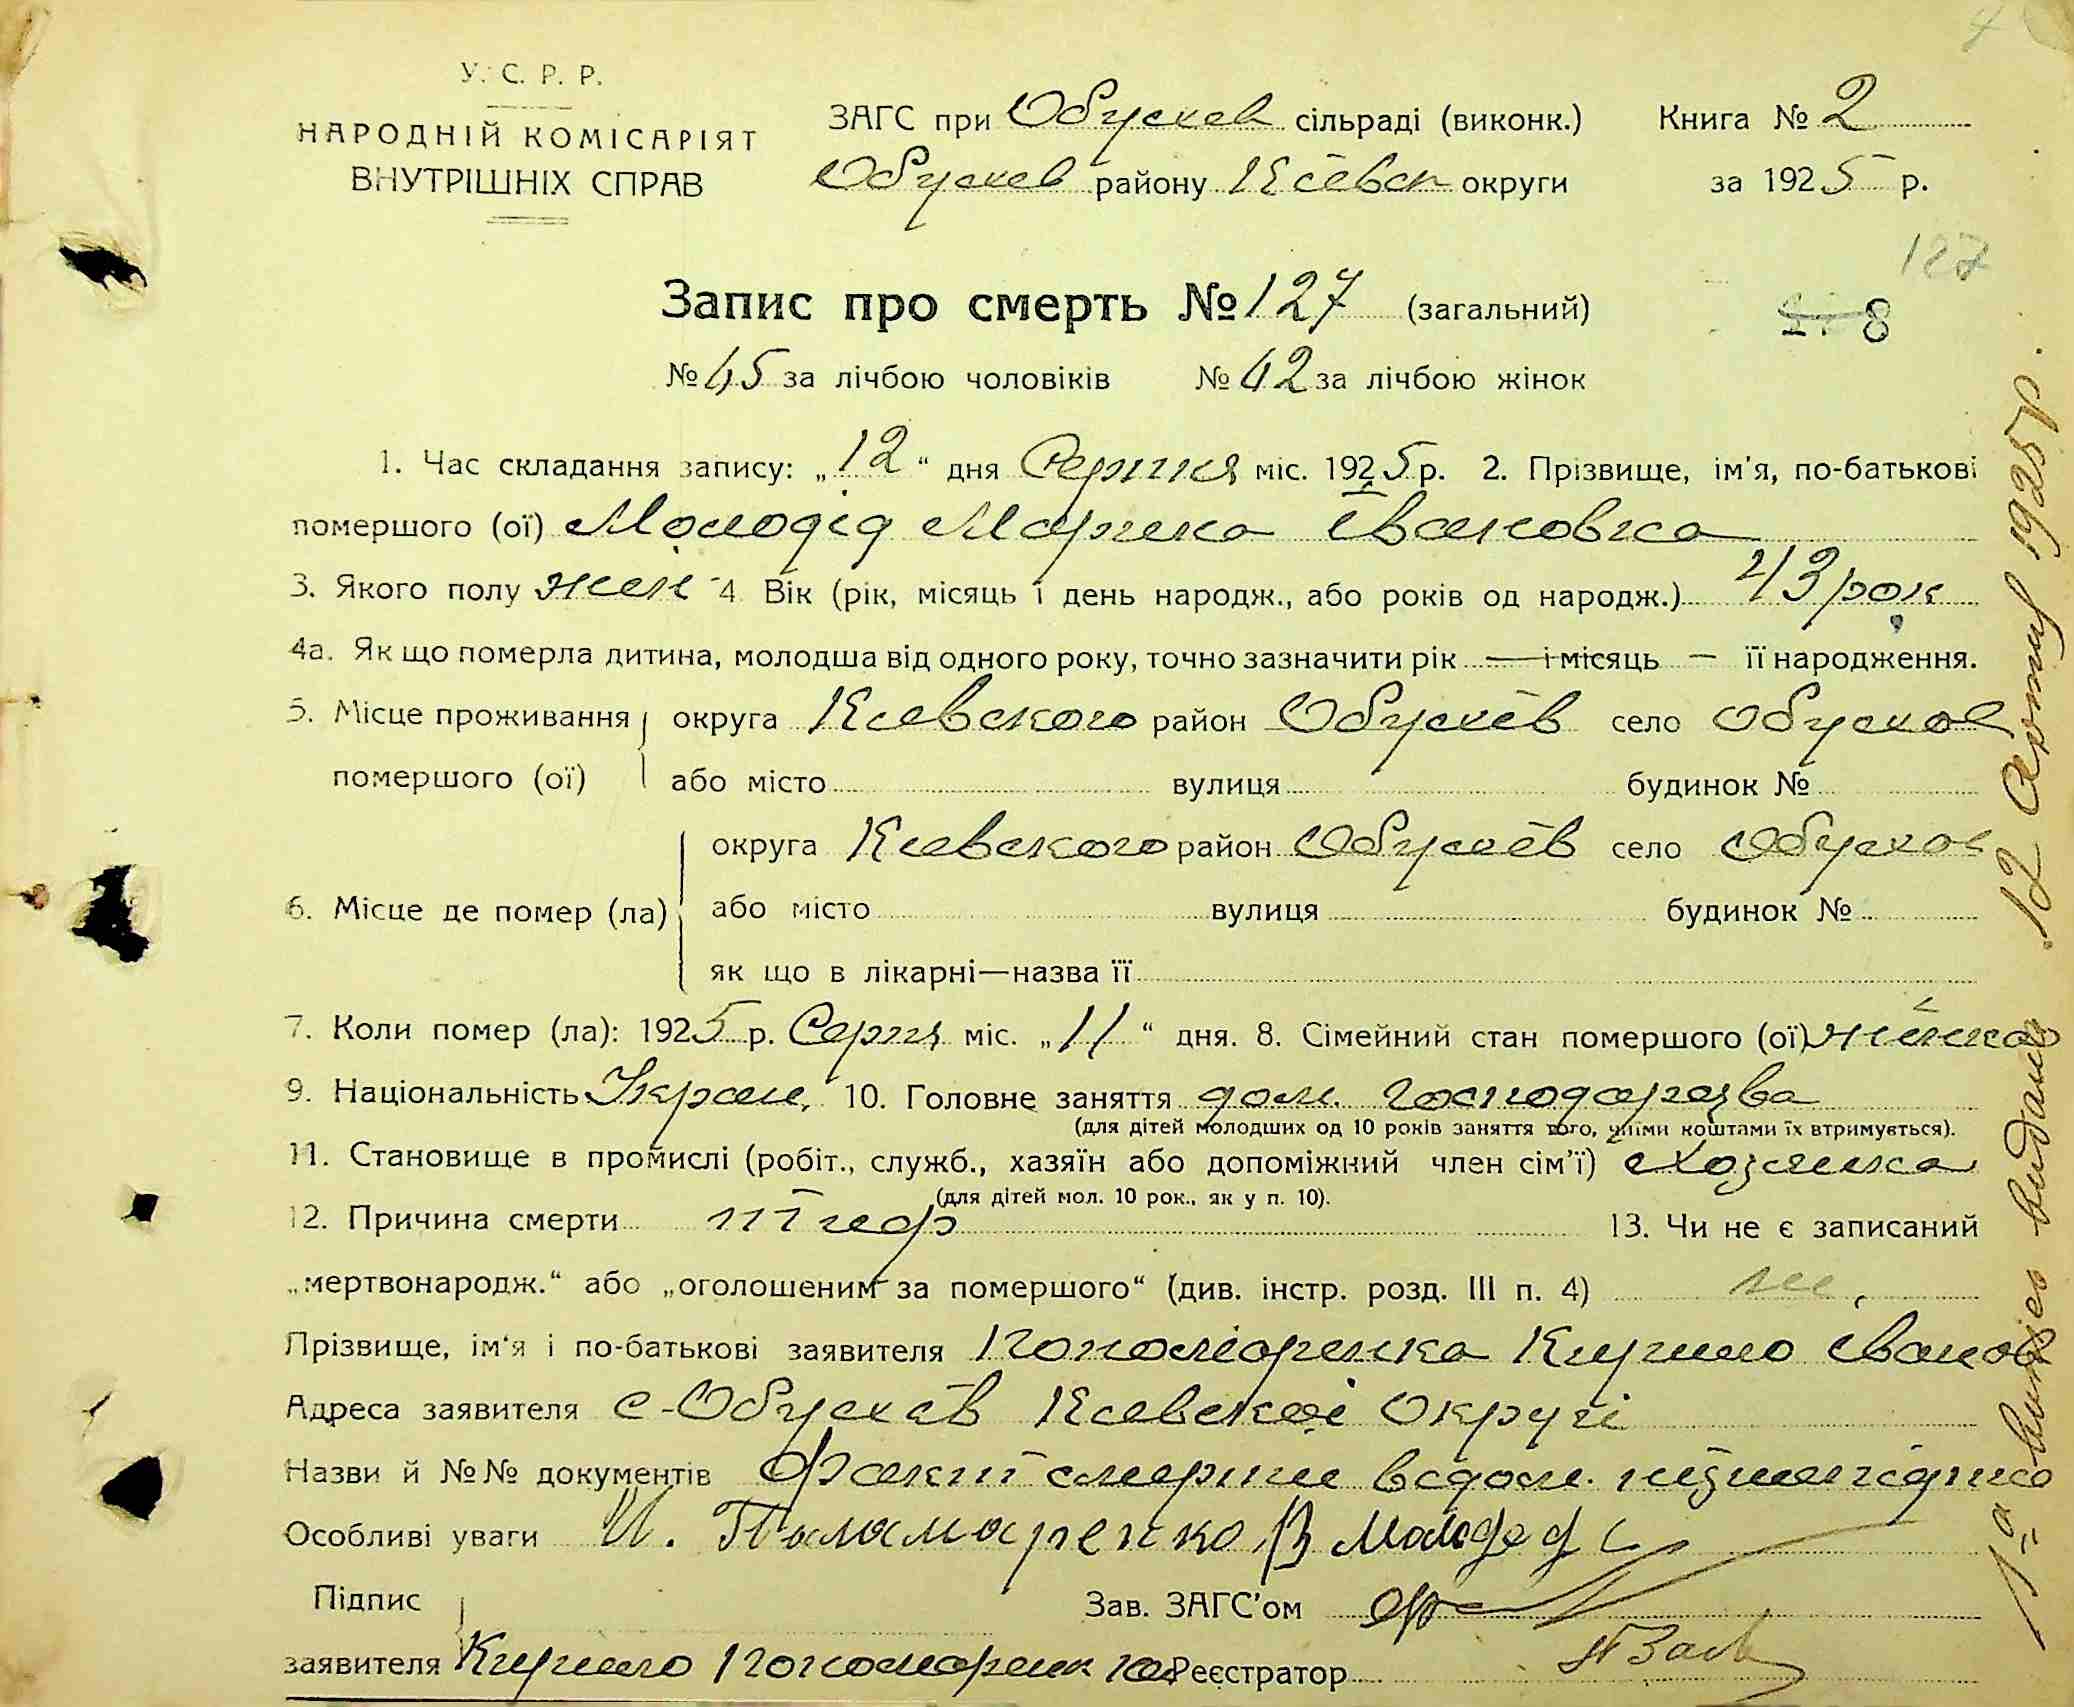 У. С. Р. Р.
НАРОДНІЙ КОМІСАРІЯТ
ВНУТРІШНІХ СПРАВ
ЗАГС при Обухов сільраді (виконк.)
Обухов району Київск округи
Книга № 2
за 1925 р.
127
Запис про смерть № 127 (загальний)
8
№ 45 за лічбою чоловіків № 42 за лічбою жінок
1. Час складання запису: „12“ дня Серпня міс. 1925 р. 2. Прізвище, ім'я, по-батькові
помершого (ої) Молодід Марина Івановна
3. Якого полу жен 4 Вік (рік, місяць і день народж., або років од народж.) 43 рок
4а. Як що померла дитина, молодша від одного року, точно зазначити рік — і місяць — її народження.
5. Місце проживання помершого (ої) округа Киевского район Обухів село Обухов
або місто вулиця будинок №
6. Місце де помер (ла) округа Киевского район Обухів село Обухов
або місто вулиця будинок №
як що в лікарні—назва її
7. Коли помер (ла): 1925 р. Серпня міс. „11“ дня. 8. Сімейний стан помершого (ої) жінка
9. Національність Украін. 10. Головне заняття дом. господарства
(для дітей молодших од 10 років заняття того, чиїми коштами їх втримується).
11. Становище в промислі (робіт., служб., хазяїн або допоміжний член сім'ї) Хозяйка
(для дітей мол. 10 рок., як у п. 10).
12. Причина смерти тіф 13. Чи не є записаний
„мертвонародж.“ або „оголошеним за помершого“ (див. інстр. розд. III п. 4) не
Прізвище, ім'я і по-батькові заявителя Пономаренко Кирило Іванов
Адреса заявителя с-Обухів Киевскоі Округі
Назви й №№ документів Факт смерти
Особливі уваги И. Паламаренко В Молодед
Підпис
заявителя Кирило Пономаренко
Зав. ЗАГС'ом
Реєстратор
1-а виписъ видана 12 Серпня 1925 р.